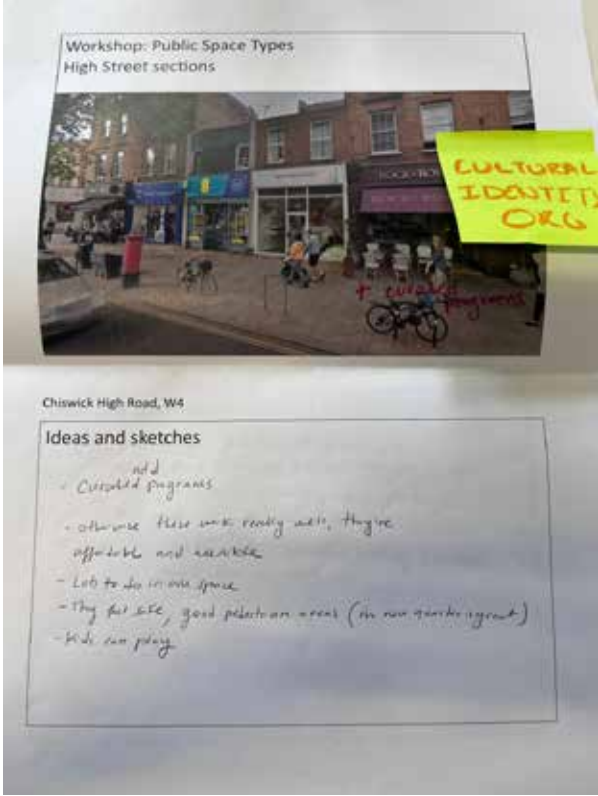 Workshop: Public Space Types
High Street sections
CULTURAL
IDENTITY
ORG
+ curated
programs
Chiswick High Road, W4
Ideas and sketches
add
- Curated programs
- otherwise these work really well, they're
affordable and accessible
- Lots to do in one space
- They feel safe, good pedestrian areas (in non
- Kids can play